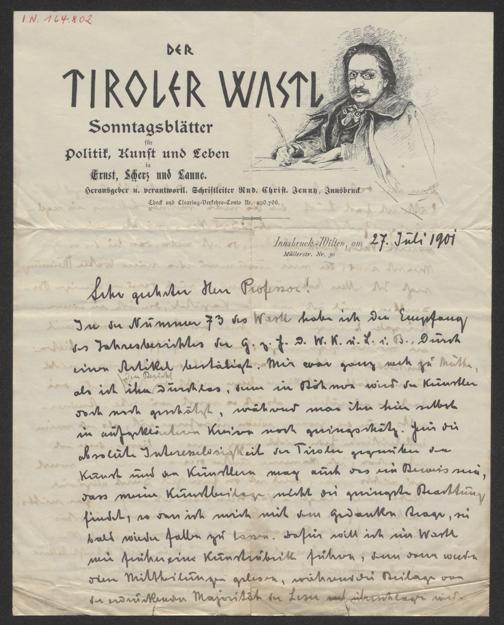 I.N. 164.802
DER
TIROLER WASTL
Sonntagsblätter
für
Politik, Kunst und Leben
in
Ernst, Scherz und Laune.
Herausgeber u. verantwortl. Schriftleiter Rud. Christ. Jenny, Innsbruck
Check und Clearing-Verkehrs-Conto Nr.
Innsbruck-Wilten, am 27. Juli 1901
Müllerstr. Nr.
Sehr geehrter Herr Professor!
In der Nummer 73 des Wastl habe ich den Empfang
des Jahresberichtes der G. z. F. d. W. K. u. L. i. B. durch
einen Artikel bestätigt. Mir war ganz weh zu Muthe,
den Bericht
als ich ihn durchlas, denn in Böhmen wird der Künstler
doch noch geschätzt, während man ihn hier selbst
in aufgeklärten Kreisen noch geringschätzt. Für die
absolute Interesselosigkeit der Tiroler gegenüber der
Kunst und den Künstlern mag auch das ein Beweis sein,
dass meine Kunstbeilage nicht die geringste Beachtung
findet, so dass ich mich mit dem Gedanken trage, sie
bald wieder fallen zu lassen. Dafür will ich im Wastl
wie früher eine Kunstrubrik führen, denn dann werden
die Mittheilungen gelesen, während die Beilage von
der erdrückenden Majorität der Leser